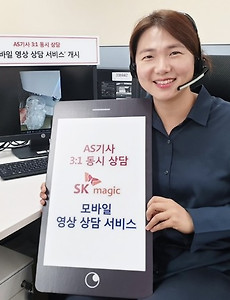 AS기사 3:1 동시 상담
바일 영상 상담 서비스' 개시
AS기사
3:1 동시 상담
SK magic
모바일
영상 상담 서비스